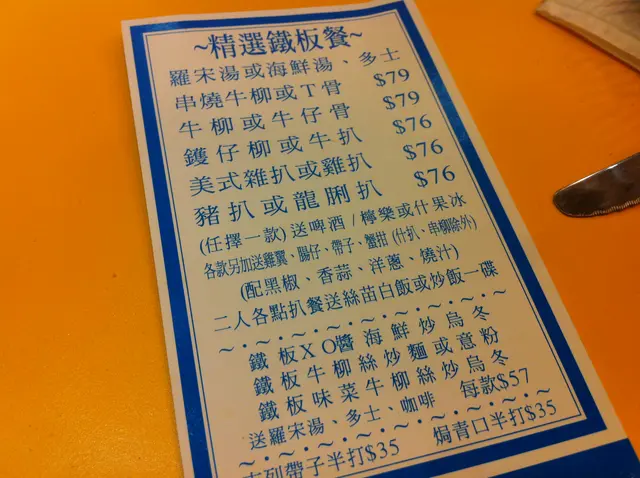 ~精選鐵板餐~
羅宋湯或海鮮湯、多士
串燒牛柳或T骨 $79
牛柳或牛仔骨 $79
鑊仔柳或牛扒 $76
美式雜扒或雞扒 $76
豬扒或龍脷扒 $76
(任擇一款) 送啤酒/檸樂或什果冰
各款另加送雞翼、腸仔、帶子、蟹柑 (什扒、串柳除外)
(配黑椒、香蒜、洋蔥、燒汁)
二人各點扒餐送絲苗白飯或炒飯一碟
鐵板XO醬海鮮炒烏冬
鐵板牛柳絲炒麵或意粉
鐵板味菜牛柳絲炒烏冬
送羅宋湯、多士、咖啡 每款$57
列帶子半打$35 焗青口半打$35